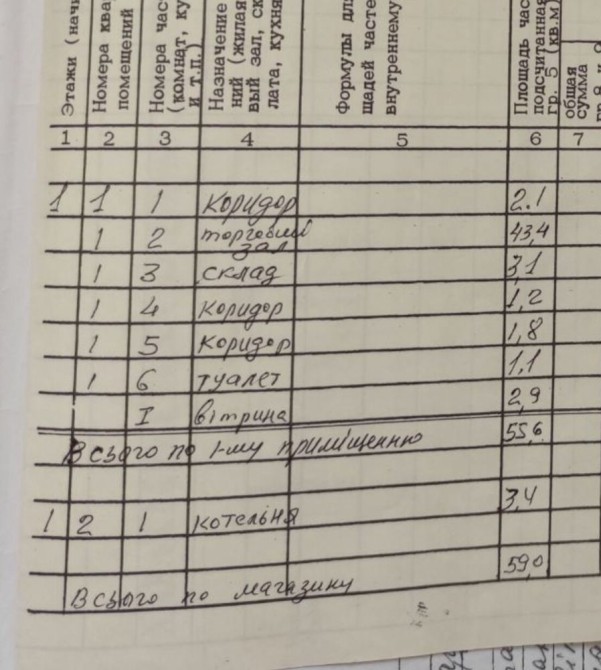 Этажи (нач
Номера ква
помещений
Номера час
(комнат, ку
и т.п.)
Назначение
ний (жилая
вый зал, ск
лата, кухня
Формулы дл
щадей часте
внутреннему
Площадь час
подсчитанная
гр. 5 (кв.м)
общая
сумма
1 2 3 4 5 6 7
1 1 1 коридор 2.1
1 2 торговий
зал 43,4
1 3 склад 3,1
1 4 коридор 1,2
1 5 коридор 1,8
1 6 туалет 1,1
I вітрина 2,9
Всього по 1-му приміщенню 55,6
1 2 1 котельня 3,4
Всього по магазину 59,0